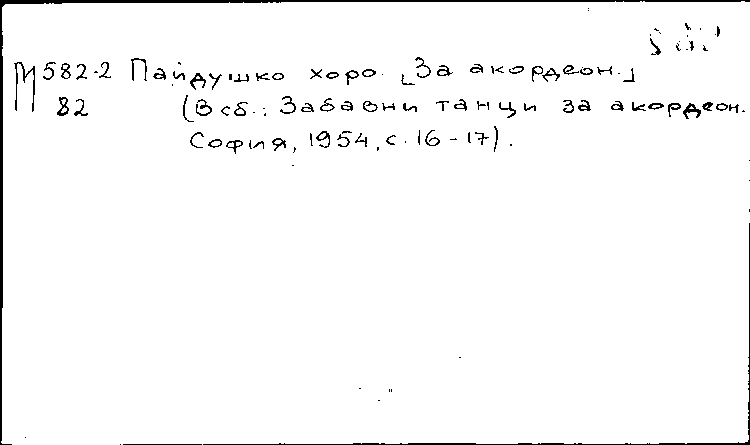 М 582-2 Пайдушко хоро. [За акордеон.]
82 (В сб.: Забавни танци за акордеон.
София, 1954, с. 16-17).